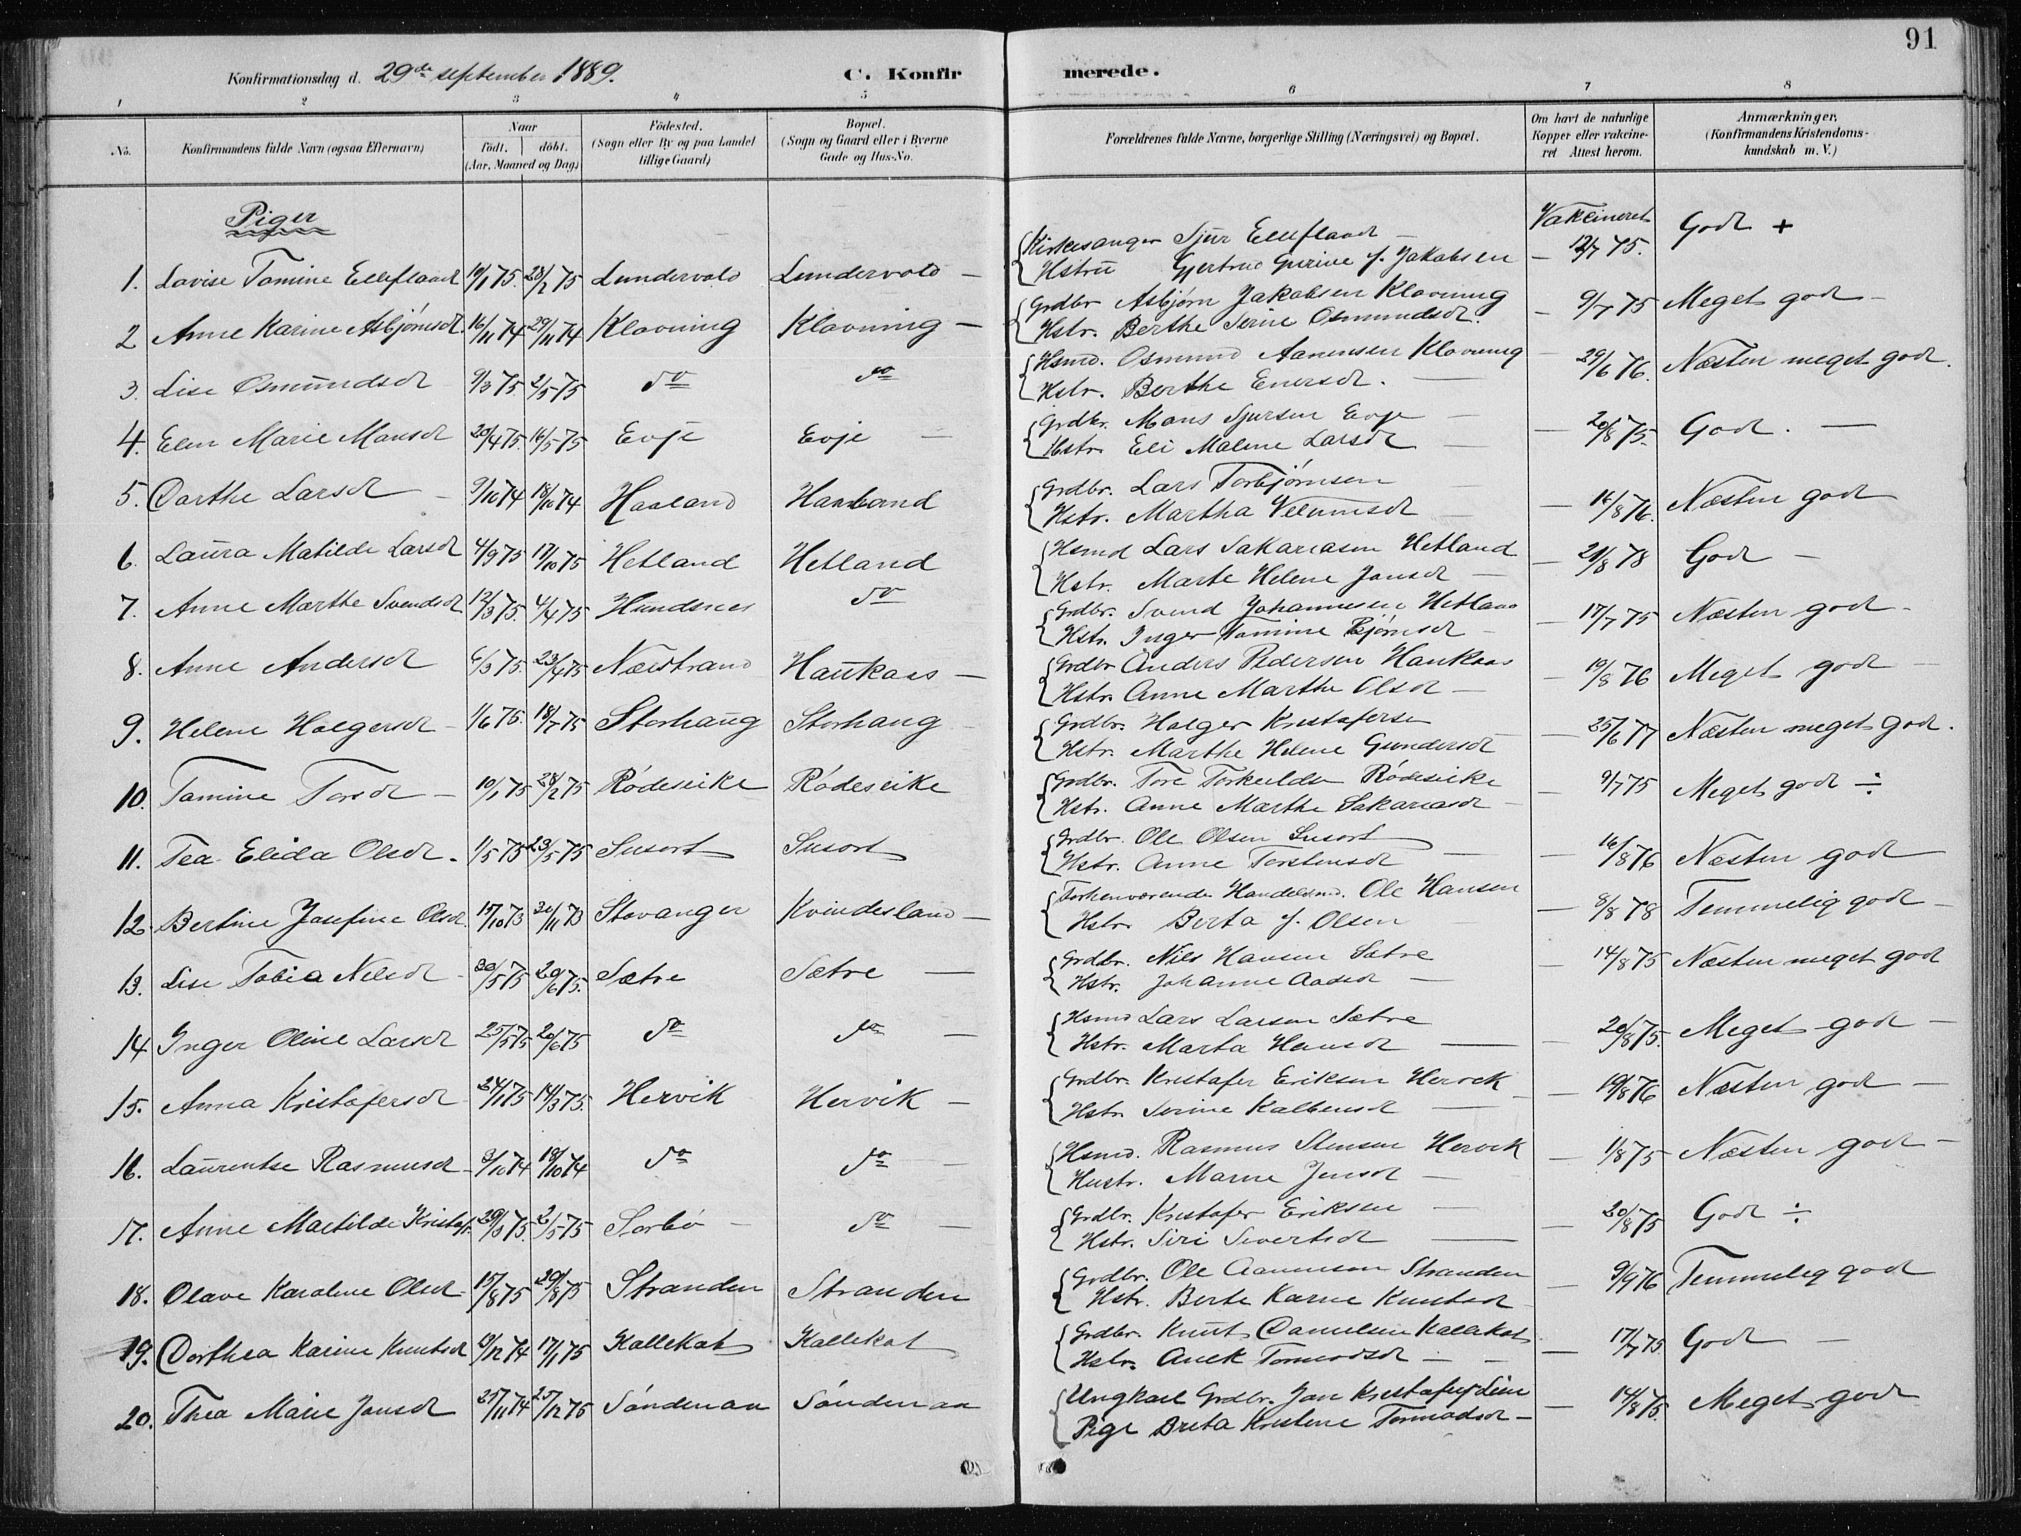 91
Konfirmationsdag d. 29de september 1889. C. Konfirmerede.
1 2 3 4 5 6 7 8
No.
Konfirmandens fulde Navn (ogsaa Efternavn)
Naar
födt. döbt.
(Aar, Maaned og Dag)
Födested.
(Sogn eller By og paa Landet
tillige Gaard)
Bopæl.
(Sogn og Gaard eller i Byerne
Gade og Hus-No.
Forældrenes fulde Navne, borgerlige Stilling (Næringsvei) og Bopæl.
Om havt de naturlige
Kopper eller vakcine-
ret Attest herom.
Anmærkninger.
(Konfirmandens Kristendoms-
kundskab m. V.)
Piger
Vakcineret
1. Lovise Tomine Ellefland 19/1 75. 28/2 75 Lundervold Lundervold — Kirkesanger Sjur Ellefland — 12/7 75. God +
Hstru Gjertrud Gurine f. Jakobsen —
2 Anne Karine Asbjørnsd 16/11 74 29/11 74 Klovning Klovning — Grdbr Asbjørn Jakobsen Klovning — 9/7 75 Meget god —
Hstr. Berthe Serine Osmundsd.
3. Lise Osmundsd 9/3 75 2/5 75 do do Hsmd. Osmund Aanensen Klovning — 29/6 76. Næsten meget god.
Hstr. Berthe Enersd. —
4. Elen Marie Monsd 20/4 75. 16/5 75 Evje Evje — Grdbr. Mons Sjursen Evje — 20/8 75. God. —
Hstr. Eli Malene Larsd —
5. Dorthe Larsd — 9/10 74 18/10 74 Haaland Haaland Grdbr. Lars Torbjørnsen — 16/8 76. Næsten god
Hstr. Martha Velumsd
6. Laura Matilde Larsd 4/9 75 17/10 75 Hetland Hetland Hsmd Lars Sakariasen Hetland — 21/8 78 God —
Hstr. Marte Helene Jansd —
7. Anne Marthe Svendsd 12/3 75. 4/4 75 Hundsnes do Grdbr. Svend Johannesen Hetland — 17/7 75 Næsten god —
Hstr. Inger Tomine Bjørnsd —
8. Anne Andersd 6/3 75. 23/4 75 Nærstrand Haukaas — Grdbr Anders Pedersen Haukaas — 19/8 76 Meget god —
Hstr. Anne Marthe Olsd —
9. Helene Holgersd — 1/6 75. 18/7 75 Storhaug Storhaug Grdbr. Holger Kristofersen — 25/6 77 Næsten meget god.
Hstr. Marthe Helene Gundersd
10. Tomine Torsd — 10/1 75 28/2 75 Rödesvike Rödesvike Grdbr. Tore Torkeilds Rödesvike — 9/7 75 Meget god ÷
Hstr. Anne Marthe Sakariasd —
11. Tea Elida Olsd. 1/5 75 23/5 75 Susort Susort Grdbr. Ole Olsen Susort — 16/8 76 Næsten god
Hstr. Anne Torstensd —
12. Bertine Josefine Olsd. 15/10 73 30/11 73 Stavanger Kvindesland — Forhenværende Handelsmd. Ole Hansen — 8/8 78 Temmelig god —
Hstr. Berta f. Olsen
13. Lise Tobia Nilsd — 30/5 75 20/6 75. Sætre Sætre — Grdbr. Nils Hansen Sætre — 14/8 75 Næsten meget god
Hstr. Johanne Aadsd —
14 Inger Oline Larsd 25/5 75 20/6 75 do do — Hsmd Lars Larsen Sætre — 20/8 75. Meget god —
Hstr. Marta Hansd —
15. Anna Kristofersd 24/1 75 14/3 75. Hervik Hervik — Grdbr. Kristofer Eriksen Hervik — 19/8 76 Næsten god —
Hstr Serine Kolbensd —
16. Laurentse Rasmusd 3/10 74 18/10 74 do do — Hsmd. Rasmus Stensen Hervik — 1/8 75 Næsten god —
Hustr. Marne Jensd —
17. Anne Martilde Kristofr. 29/3 75. 2/5 75 Sorbö — do — Grdbr. Kristofer Eriksen — 20/8 75 God ÷
Hstr. Siri Sivertsd —
18. Olave Karoline Olsd 15/8 75 29/8 75 Stranden Stranden Grdbr. Ole Aanensen Stranden — 9/9 76 Temmelig god
Hstr. Berte Karine Knutsd
19. Dorthea Karine Knutsd 13/12 74 17/1 75 Kallekot Kallekot Grdbr. Knut Danielsen Kallekot — 17/7 75 God —
Hstr. Anek Tormodsd — —
20. Thea Marie Jansd 25/11 74 25/12 75 Söndenaa Söndenaa Ungkarl Grdbr. Jan Kristofersen Lein — 14/8 75. Meget god
Pige Breta Kristene Tormodsd —